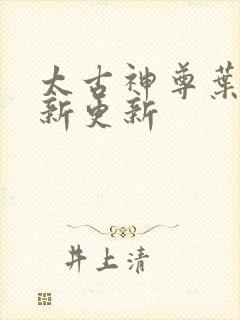 太古神尊葉
新更新
井上清